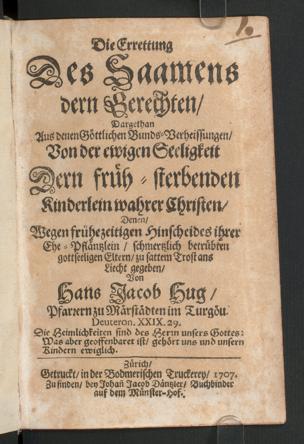 Die Errettung
Des Saamens
dern Gerechten/
Dargethan
Aus denen Göttlichen Bunds-Verheissungen/
Von der ewigen Seeligkeit
Dern früh-sterbenden
Kinderlein wahrer Christen/
Denen/
Wegen frühezeitigen Hinscheides ihrer
Ehe-Pfläntzlein/ schmertzlich betrübten
gottseeligen Eltern/ zu sattem Trost ans
Liecht gegeben/
Von
Hans Jacob Hug/
Pfarrern zu Märstädten im Turgöu.
Deuteron. XXIX. 29.
Die Heimlichkeiten sind des Herrn unsers Gottes:
Was aber geoffenbaret ist/ gehört uns und unsern
Kindern ewiglich.
Zürich/
Getruckt/ in der Bodmerischen Truckerey/ 1707.
Zu finden/ bey Johañ Jacob Däntzler/ Buchbinder
auf dem Münster-Hof.